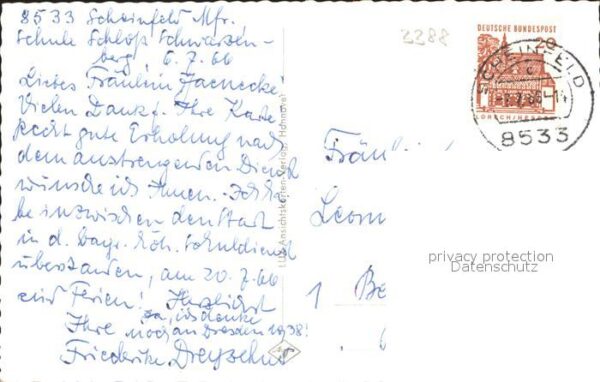 8533 Scheinfeld Mfr.
Schule Schloß Schwarzen-
berg, 6.7.66
Liebes Fräulein Jaenecke!
Vielen Dank f. Ihre Karte
Recht gute Erholung nach
dem anstrengenden Dienst
wünsche ich Ihnen. Ich ha-
be inzwischen den Start
in d. Bayr. Höh. Schuldienst
überstanden, am 20.7.66
sind Ferien! Herzlichst
Ja, ich denke
Ihre noch an Dresden 1938!
Friederike Dreyzehnt
Ansichtskarten-Verlag, Hannover
2288
DEUTSCHE BUNDESPOST
20
LORSCH/HESSEN
SCHEINFELD
8533
Fräu
Leom
1 Be
privacy protection
Datenschutz